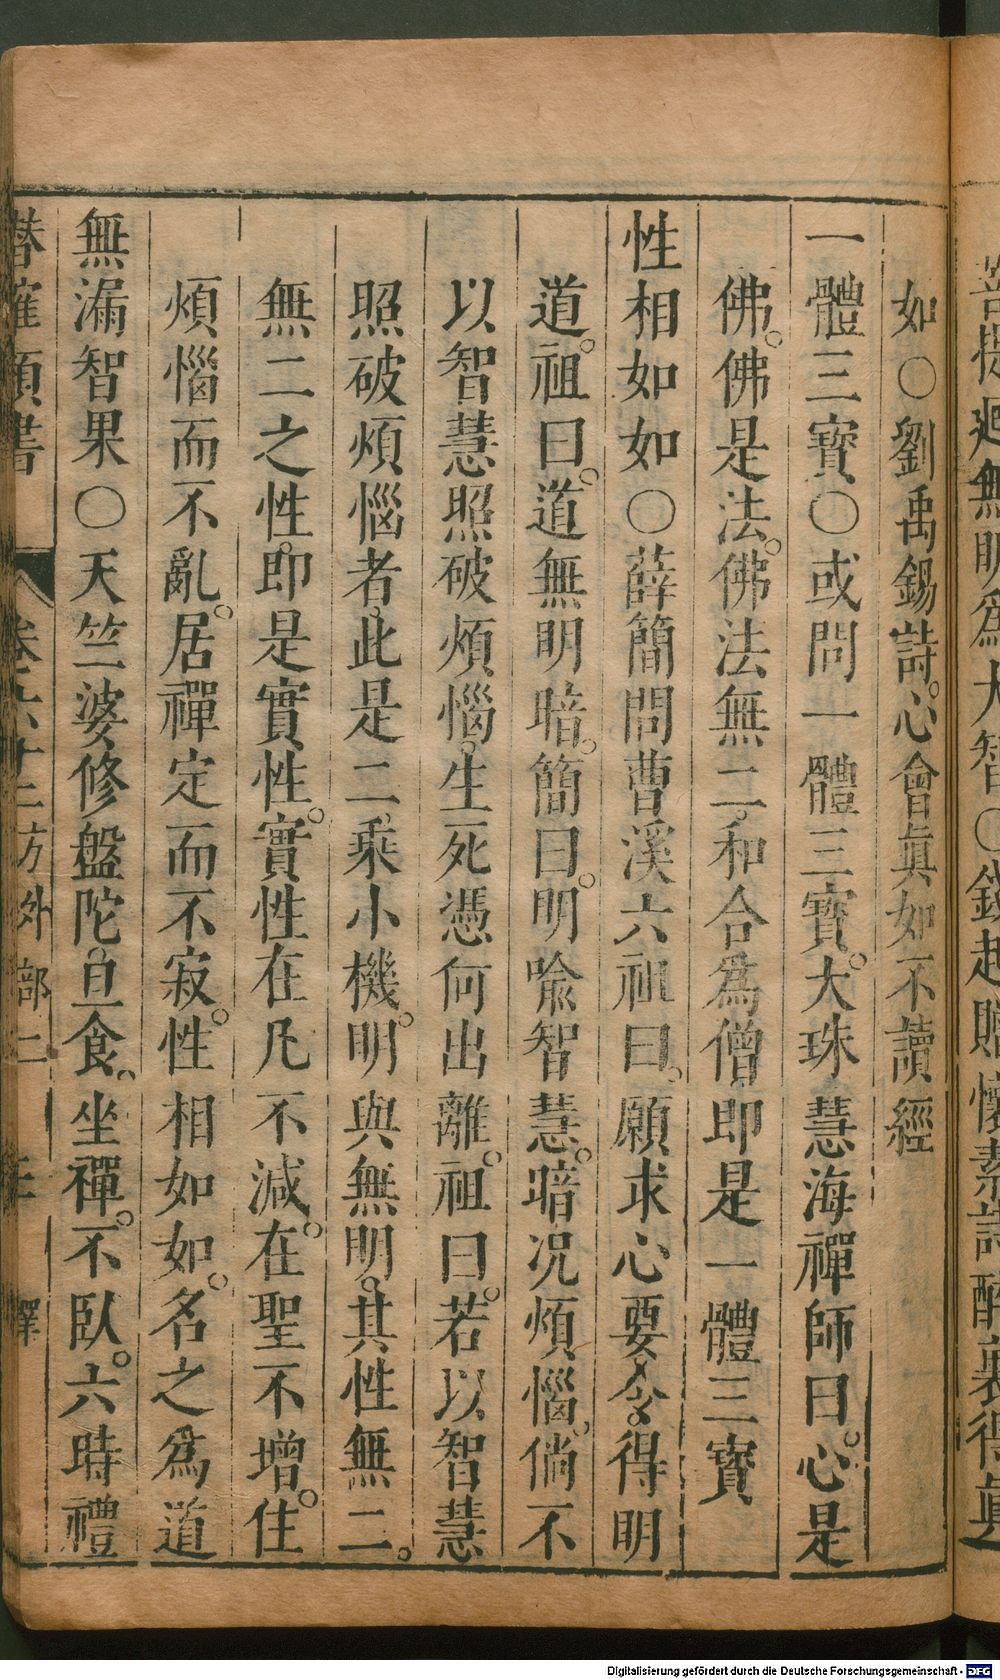 菩提迴無明為大智○錢起贈懷素詩醉裏得眞
如○劉禹錫詩。心會眞如不讀經
一體三寶○或問一體三寶。大珠慧海禪師曰。心是
佛。佛是法。佛法無二。和合爲僧即是一體三寶
性相如如○薛簡問曹溪六祖曰。願求心要令得明
道。祖曰。道無明暗。簡曰。明喻智慧。暗况煩惱。倘不
以智慧照破煩惱。生死憑何出離。祖曰。若以智慧
照破煩惱者。此是二乘小機。明與無明。其性無二。
無二之性。即是實性。實性在凡不減。在聖不增。住
煩惱而不亂。居禪定而不寂。性相如如。名之爲道
無漏智果○天竺婆修盤陀。旦食。坐禪。不臥。六時禮
潛確類書 卷六十二方外部二 三 釋
Digitalisierung gefördert durch die Deutsche Forschungsgemeinschaft - DFG